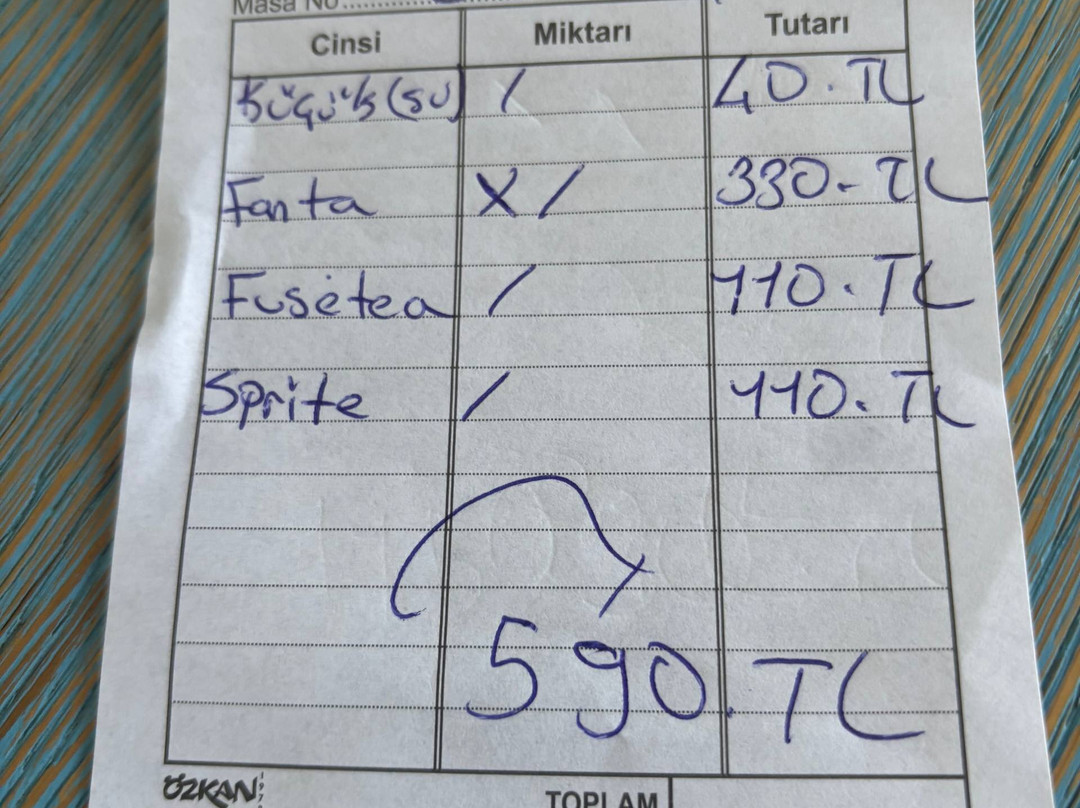 Masa No
Cinsi Miktarı Tutarı
Küçük (su) / 40.TL
Fanta X/ 330-TL
Fusetea / 110.TL
Sprite / 110.TL
590.TL
ÖZKAN
TOPLAM